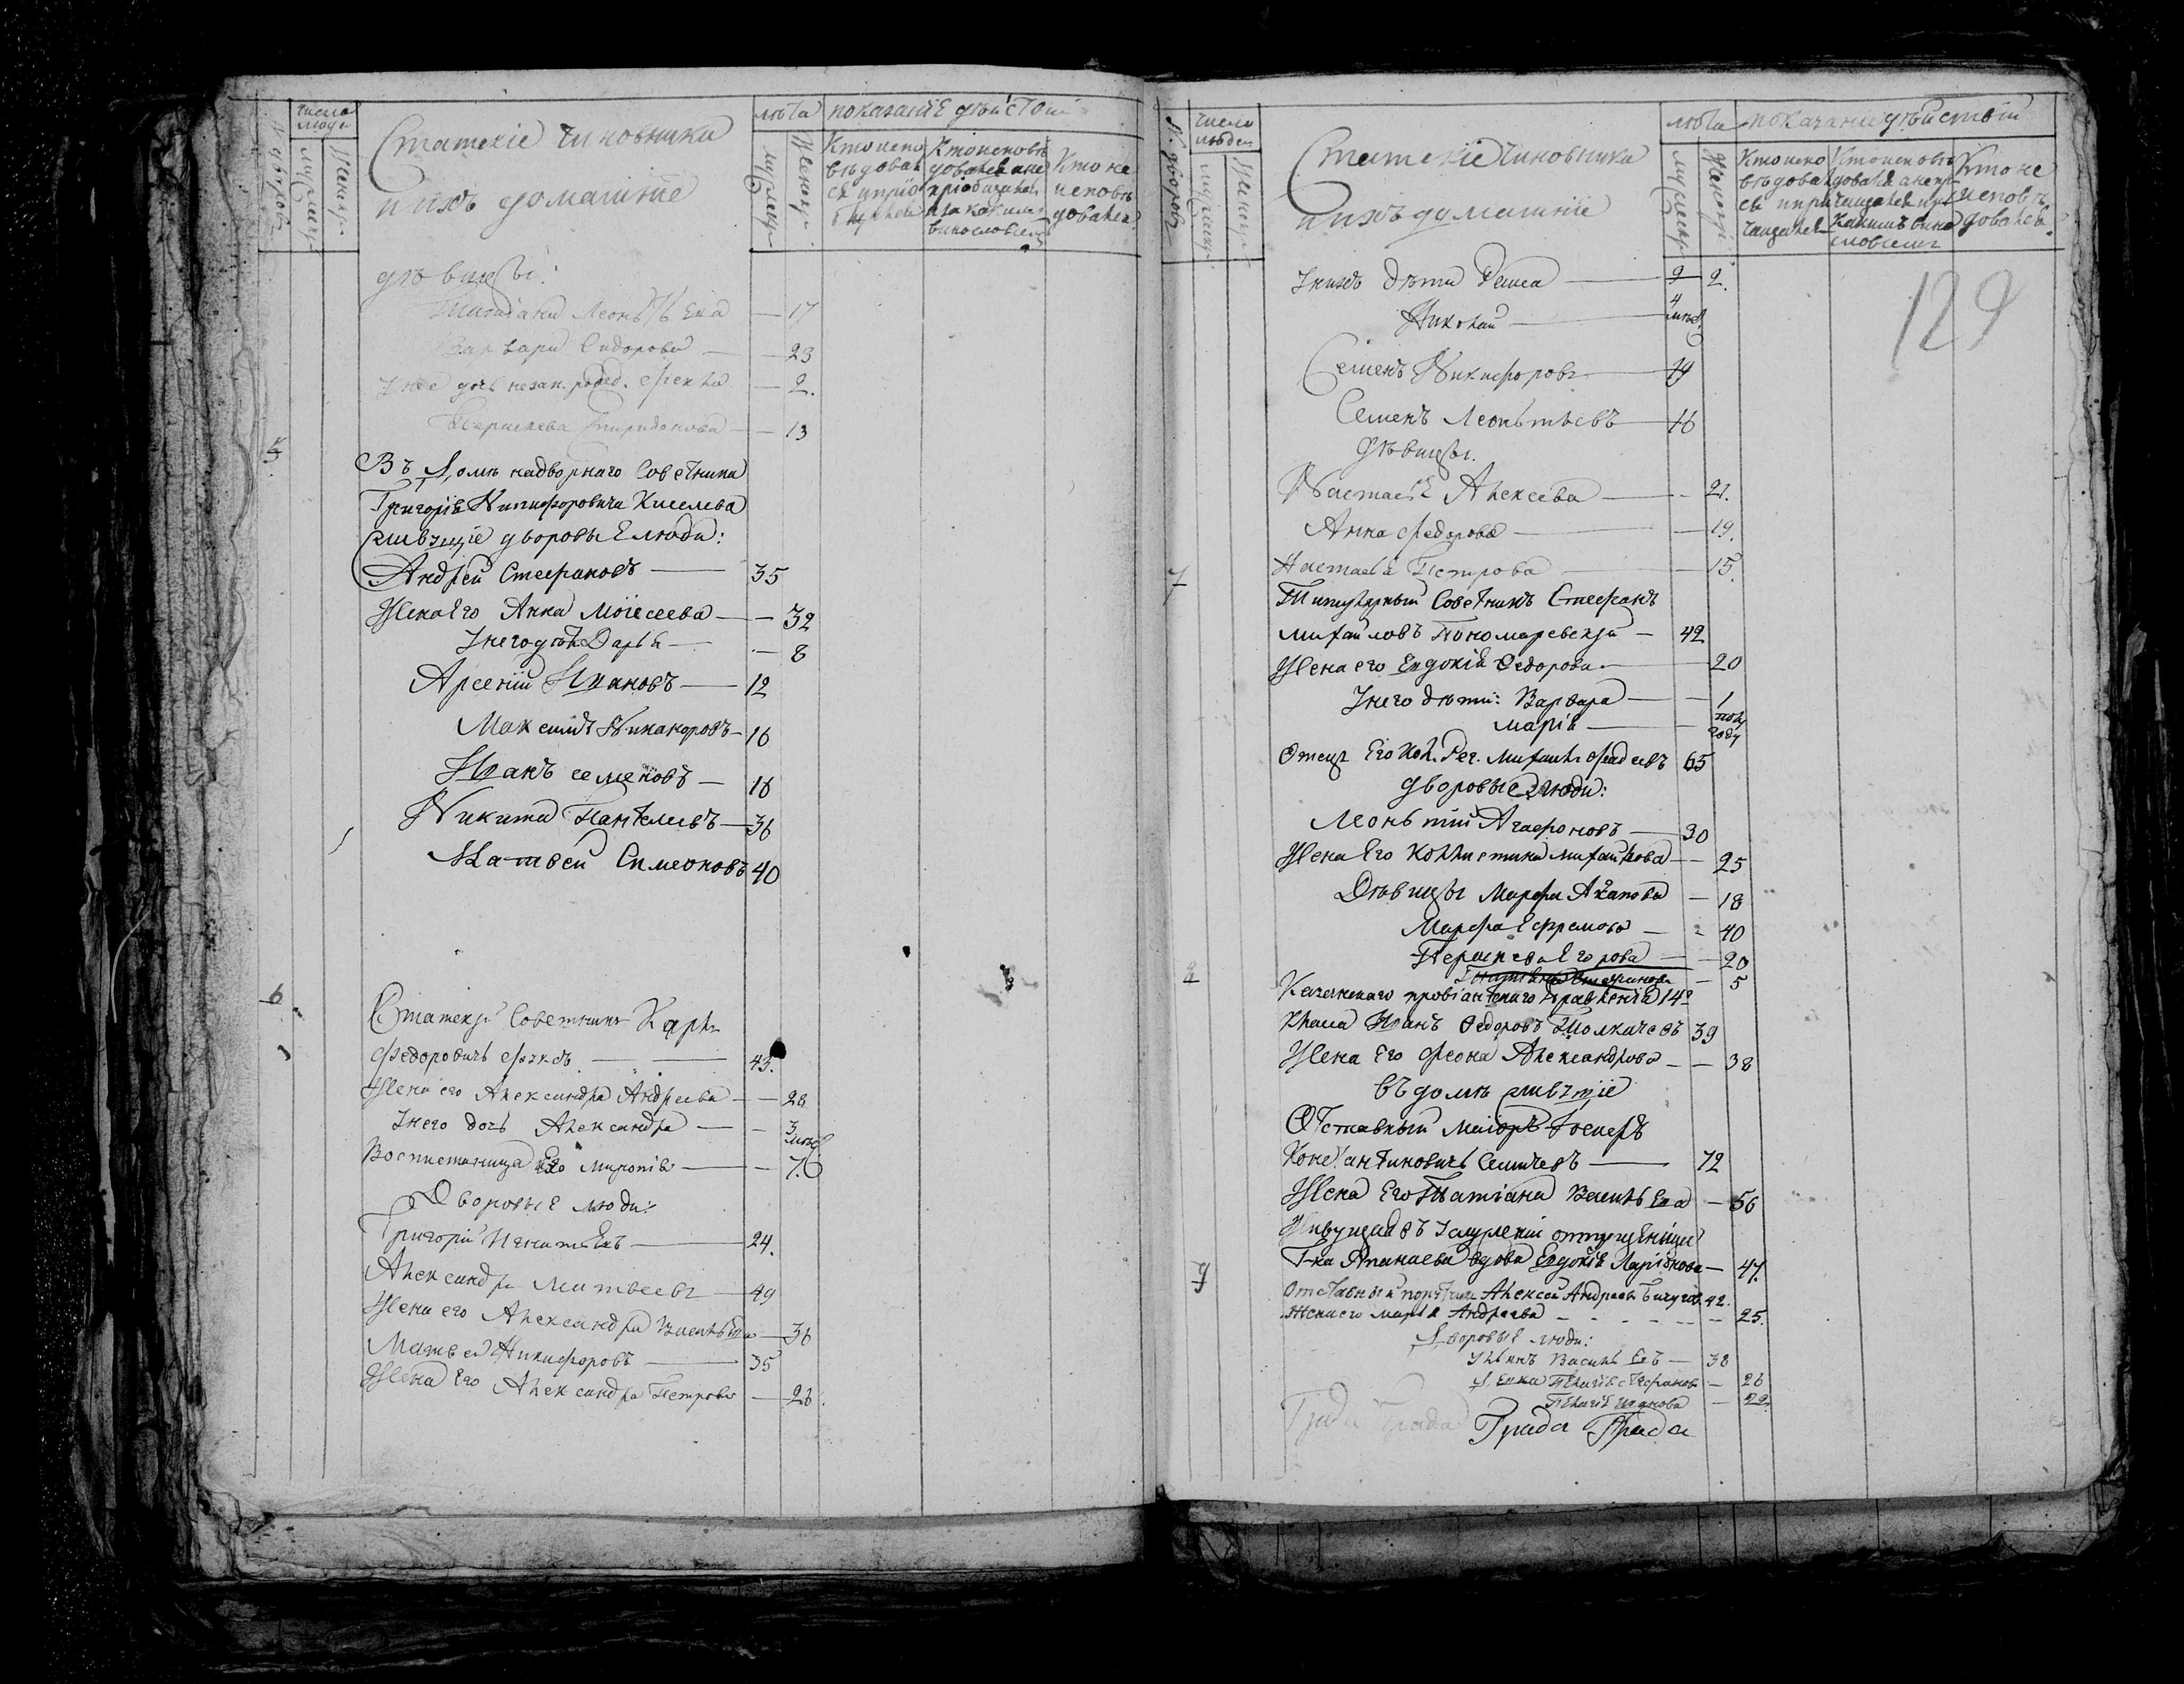 № дворовъ
число люде
муж: пол
женск:
Статскіе чиновники
и ихъ домашніе
лѣта
показаніе дѣйствій
мужеск:
женск:
Кто исповѣдовался и пріобщался
Кто исповѣдовался а не пріобщался и за какимъ винословіемъ
Кто не исповѣдовался
дѣвицы:
Татіана Леонтьева — 17
Варвара Сидорова — 23
У нее дочь незак. рожд. Фекла — 2.
Параскева Спиридонова — 13
5.
Въ Домѣ надворнаго Советника
Григорія Никифоровича Киселева
живущіе дворовые люди:
Андрей Стефановъ — 35
Жена Его Анна Моісеева — 32
У него дочь Дарья — 8
Арсеній Ивановъ — 12
Максимъ Никаноровъ — 16
Иванъ семеновъ — 16
Никита Пантелеевъ — 36
Матвей Симеоновъ 40
6
Статскій Советникъ Карлъ
Федоровичъ Фуксъ — 43.
Жена его Александра Андреева — 28
У него дочь Александра — 3 мѣс
Воспитаница Его Миропія — 7.
Дворовые люди:
Григорій Игнатьевъ — 24.
Александръ Матвеевъ — 49
Жена его Александра Васильева — 36
Матвей Никифоровъ — 35
Жена Его Александра Петрова — 26.
№ дворовъ
число людей
мужеск:
женск:
Статскіе чиновники
и ихъ домашніе
лѣта
показаніе дѣйствій
мужеск:
женск:
Кто исповѣдовался и причащался
Кто исповѣдовался а не причащался и за какимъ винословіемъ
Кто не исповѣдовался.
129
У нихъ дѣти Раиса — 2.
Николай — 4 мѣс.
Семенъ Никифоровъ — 19
Семенъ Леонтьевъ — 16
Дѣвицы.
Настасья Алексеева — 21.
Анна Федорова — 19.
Настасья Петрова — 15.
7
Титулярный Советникъ Стефанъ
Михайловъ Пономаревскій — 42
Жена его Евдокія Федорова — 20
У него дѣти: Варвара — 1
Марія — полу году
Отецъ Его Кол. Рег. Михаилъ Фадеевъ 65
дворовые люди:
Леонтій Агафоновъ — 30
Жена Его Коллистина Михайлова — 25
Дѣвицы Марфа Акапова — 18
Марфа Ефремова — 40
Параскева Егорова — 20
8
— 5
Казанскаго провіантскаго Правленія 14го
Класа Иванъ Федоровъ Толкачевъ 39
Жена Его Феона Александрова — 38
въ домѣ живутіе
Отставный Маіоръ Іосифъ
Константиновичъ Семичевъ — 72
Жена Его Татіана Васильева — 56
Г-жа Апанаева вдова Евдокія Ларіонова — 47.
9
Отставный порутчикъ Алексей Андреевъ 42.
жена его Марья Андреева — 25.
Дворовые люди:
Ульянъ Васильевъ — 38
Девки Пелагія Стефанова — 26
Пелагія Иванова — 22
Града Града Града Града